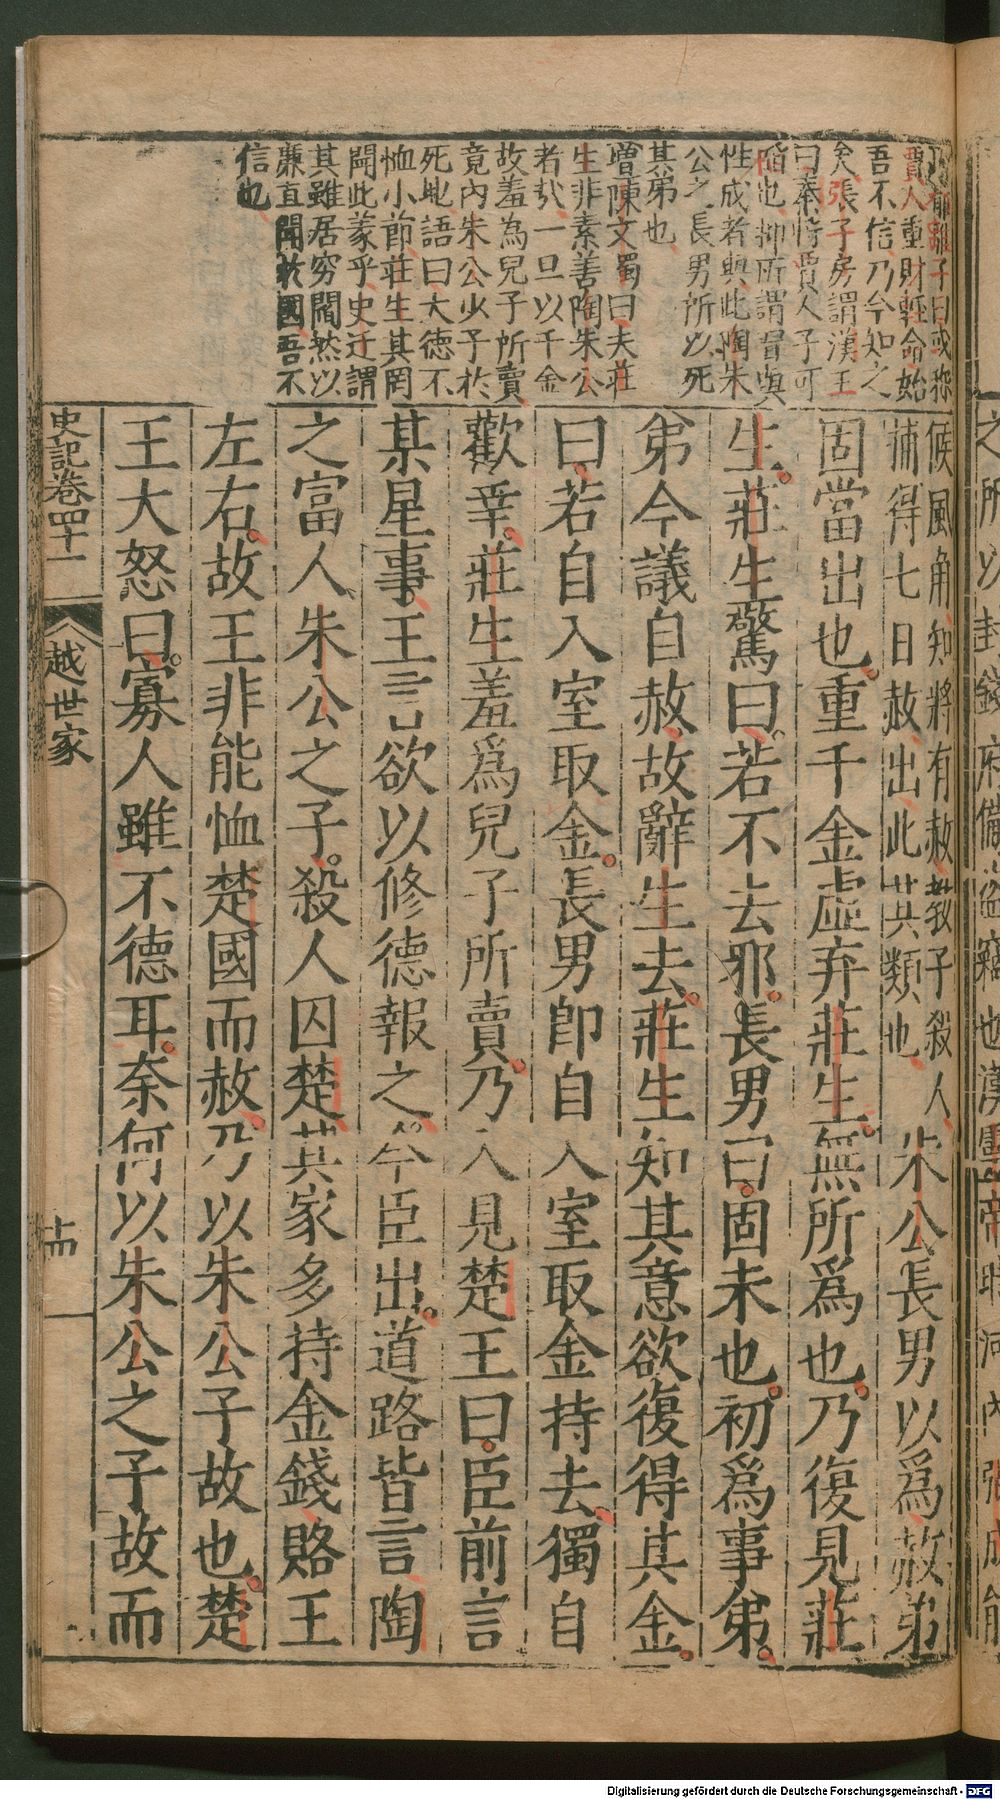 郁離子曰或称
賈人重財輕命始
吾不信乃今知之
矣張子房謂漢王
曰秦將賈人子可
啗也抑所謂習與
性成者與此陶朱
公之長男所以死
其弟也
陳文燭曰夫莊
生非素善陶朱公
者於一旦以千金
故羞為兒子所賣
竟內朱公少子於
死地語曰大德不
恤小節莊生其罔
聞此義乎史迁謂
其雖居穷閻然以
廉直聞於國吾不
信也
候風角知將有赦教子殺人
捕得七日赦出此其類也
朱公長男以爲赦弟
固當出也重千金虛弃莊生無所爲也乃復見莊
生莊生驚曰若不去邪長男曰固未也初爲事弟
弟今議自赦故辭生去莊生知其意欲復得其金
曰若自入室取金長男即自入室取金持去獨自
歡幸莊生羞爲兒子所賣乃入見楚王曰臣前言
某星事王言欲以修德報之今臣出道路皆言陶
之富人朱公之子殺人囚楚其家多持金錢賂王
左右故王非能恤楚國而赦乃以朱公子故也楚
王大怒曰寡人雖不德耳奈何以朱公之子故而
史記卷四十一
越世家
十四
Digitalisierung gefördert durch die Deutsche Forschungsgemeinschaft - DFG